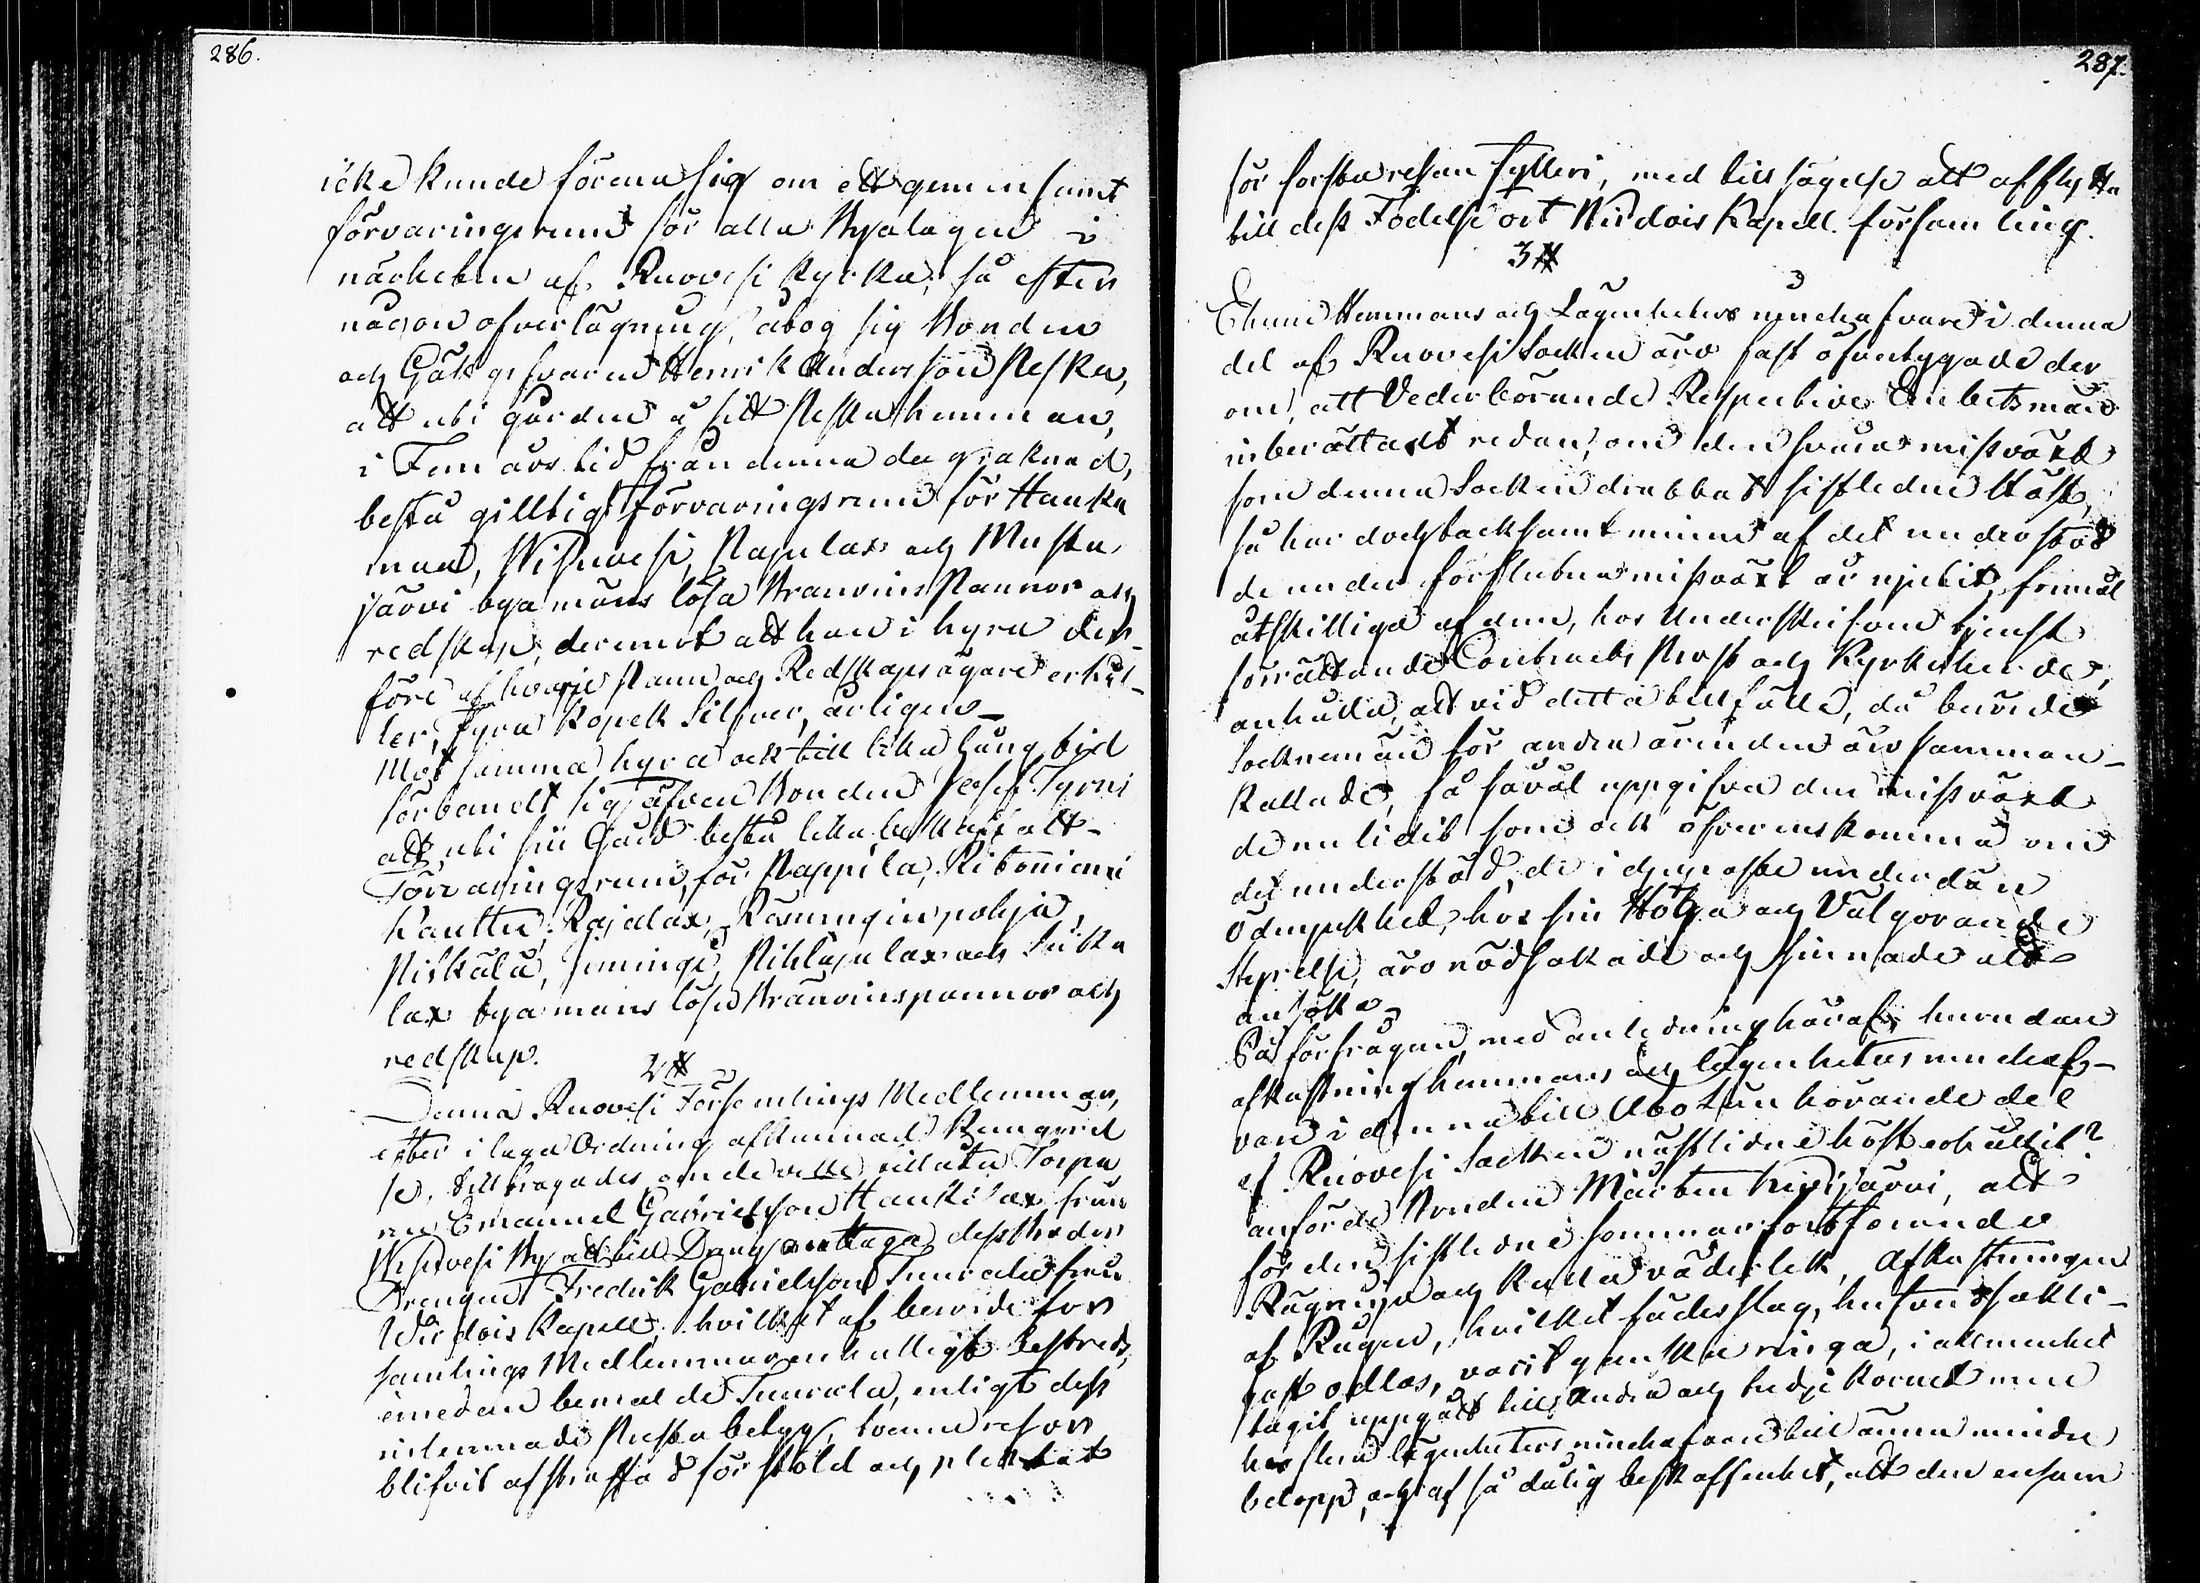 286.
icke kunde förena sig om ett gemensamt
förvaringsrum för alla Byalagen i
närheten af Ruovesi kyrka, så efter
någon öfverlägning, åtog sig Bonden
och Gästgifvaren Henrik Andersson Peska,
att uti gården å sitt Peska hemman,
i Fem års tid från denna dag räknad,
bestå gilltigt förvaringsrum för Hanka
maa, Wisuvesi, Pajulax och Musta
järvi byamäns lösa Bränvins Pannor och
redskap, deremot att han i hyra der-
före af hvarje Panna och Redskaps ägare erhål-
ler, fyra Kopek Silfver, årligen_
Mot samma hyra och till lika lång tid
förbandt sig äfven Bonden Josef Tyrni
att uti sin Gård bestå lika beskaffadt
Förvaringsrum, för Pappila, Ritoniemi
Kautu, Rajalax, Röyningin pohja,
Piskälä, Jäminge, Pihlajalax och Siika
lax byamäns lösa Bränvinspannor och
redskap.
2 §
Denna Ruovesi Församlings Medlemmar,
efter i laga Ordning afkunnad Kungörel
se, tillfrågades om de ville tillåta Torpa
ren Emanuel Gabrielsson Hankilax från
Wisuvesi By att till Dräng antaga dess broder
Drengen Fredrik Gabrielsson Tuurala från
Wirdois Kapell, hvilket af berörde För
samlings Medlemmar enhälligt bestreds,
emedan bemälde Tuurala, enligt dess
inlemnade Presta betyg, tvenne resor
blifvit afstraffad för stöld och plicktat
287.
för första resan fylleri, med tillsägelse att afflytta
till dess Födelse ort Wirdois Kapell församling.
3 §
Ehuru Hemmans och Lägenheters innehafvare i denna
del af Ruovesi Socken äro fast öfvertygade der
om, att Vederbörande Respective Embetsmän
inberättat redan, om den svåra missväxt
som denna Socken drabbat sistledne Höst,
så har dock tacksamt minne af det understöd
de under förflutna missväxt år njutit, förmål
åtskilliga af dem, hos Underskrifven tjenst
förrättande Contracts Prost och Kyrkoherde,
anhålla, att vid detta tillfälle, då berörde
Sockenmän för andra ärenden äro samman-
kallade, få såväl uppgifva den missväxt
de nu lidit som ock öfverenskomma om
det understöd, de i djupaste underdån
ödmjukhet, hos sin Höga och Välgörande
Styrelse, äro nödsakade och sinnade att
ansöka_
På förfrågan, med anledning häraf, hurudan
afkastning hemmans och lägenheters innehaf-
vare i denna till Åbo Län hörande del
af Ruovesi Socken nästledne höst erhållit?
anförde Bonden Mårten Kirijärvi, att
för den sistledne sommar fortfarande
Rägniga och kalla väderlek, Afkastningen
af Rågen, hvilket sädesslag, hufvudsakli-
gast odlas, varit ganska ringa, i allmenhet
tagit uppgått till Andra och tredje kornet men
hos flera lägenheters innehafvare till ännu mindre
belopp, och af så dålig beskaffenhet, att den ensam